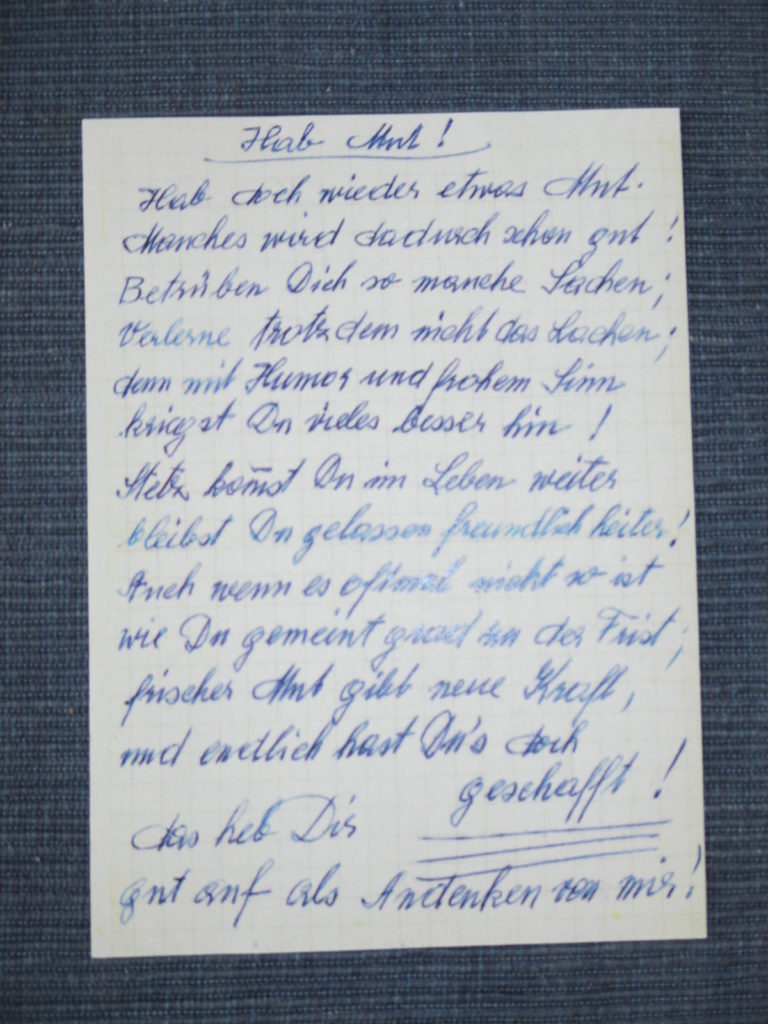 Hab Mut!
Hab doch wieder etwas Mut.
Manches wird dadurch schon gut!
Betrüben Dich so manche Sachen;
Verlerne trotzdem nicht das Lachen;
denn mit Humor und frohem Sinn
kriegst Du vieles besser hin!
Stets kom̅st Du im Leben weiter
bleibst Du gelassen freundlich heiter!
Auch wenn es oftmal nicht so ist
wie Du gemeint grad zu der Frist;
frischer Mut gibt neue Kraft,
und endlich hast Du's doch
geschafft!
das heb Dir
gut auf als Andenken von mir!